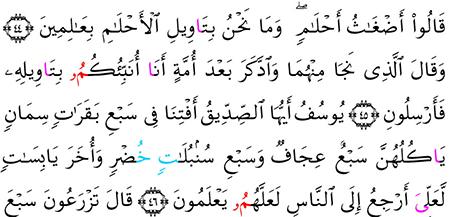 قَالُوٓاْ أَضۡغَٰثُ أَحۡلَٰمٖۖ وَمَا نَحۡنُ بِتَاوِيلِ ٱلۡأَحۡلَٰمِ بِعَٰلِمِينَ ٤٤
وَقَالَ ٱلَّذِي نَجَا مِنۡهُمَا وَٱدَّكَرَ بَعۡدَ أُمَّةٍ أَنَا أُنَبِّئُكُمُۥ بِتَاوِيلِهِۦ
فَأَرۡسِلُونِ ٤٥ يُوسُفُ أَيُّهَا ٱلصِّدِّيقُ أَفۡتِنَا فِي سَبۡعِ بَقَرَٰتٖ سِمَانٖ
يَاكُلُهُنَّ سَبۡعٌ عِجَافٞ وَسَبۡعِ سُنۢبُلَٰتٍ خُضۡرٖ وَأُخَرَ يَابِسَٰتٖ
لَّعَلِّيَ أَرۡجِعُ إِلَى ٱلنَّاسِ لَعَلَّهُمُۥ يَعۡلَمُونَ ٤٦ قَالَ تَزۡرَعُونَ سَبۡعَ